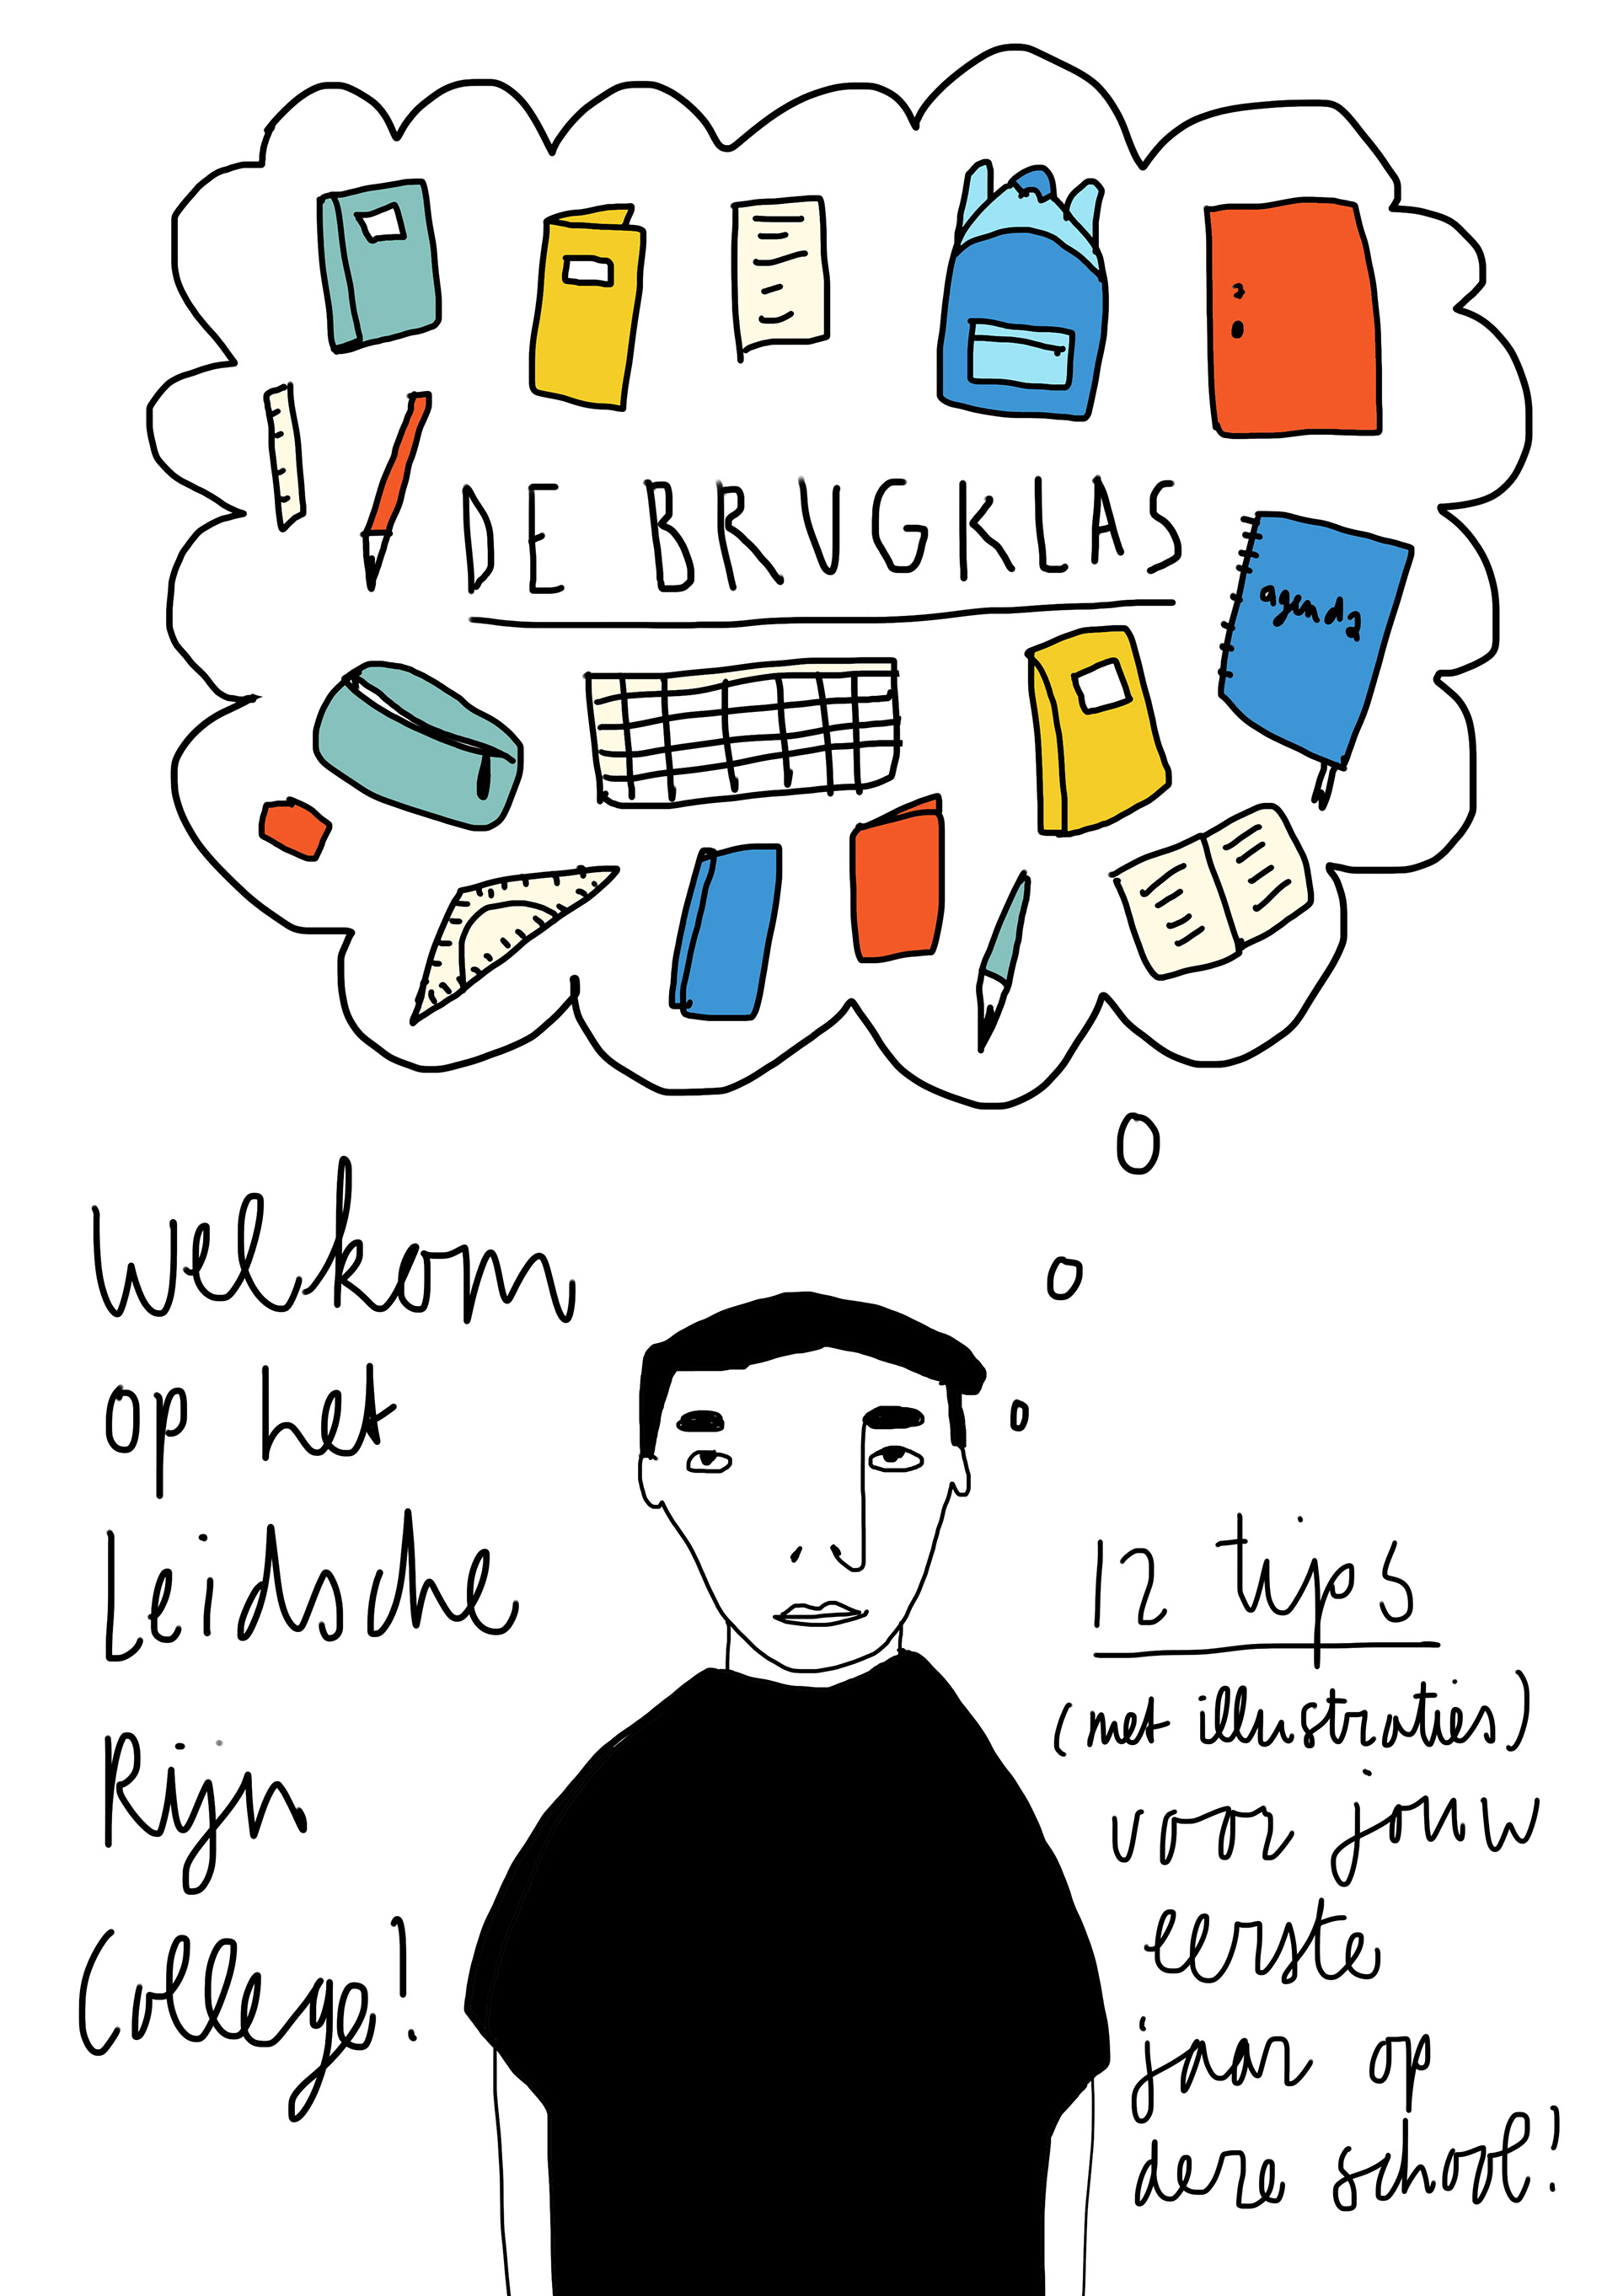 DE BRUGKLAS
agenda
Welkom
op het
Leidsche
Rijn
College!
12 tips
(met illustraties)
voor jouw
eerste
jaar op
deze school!